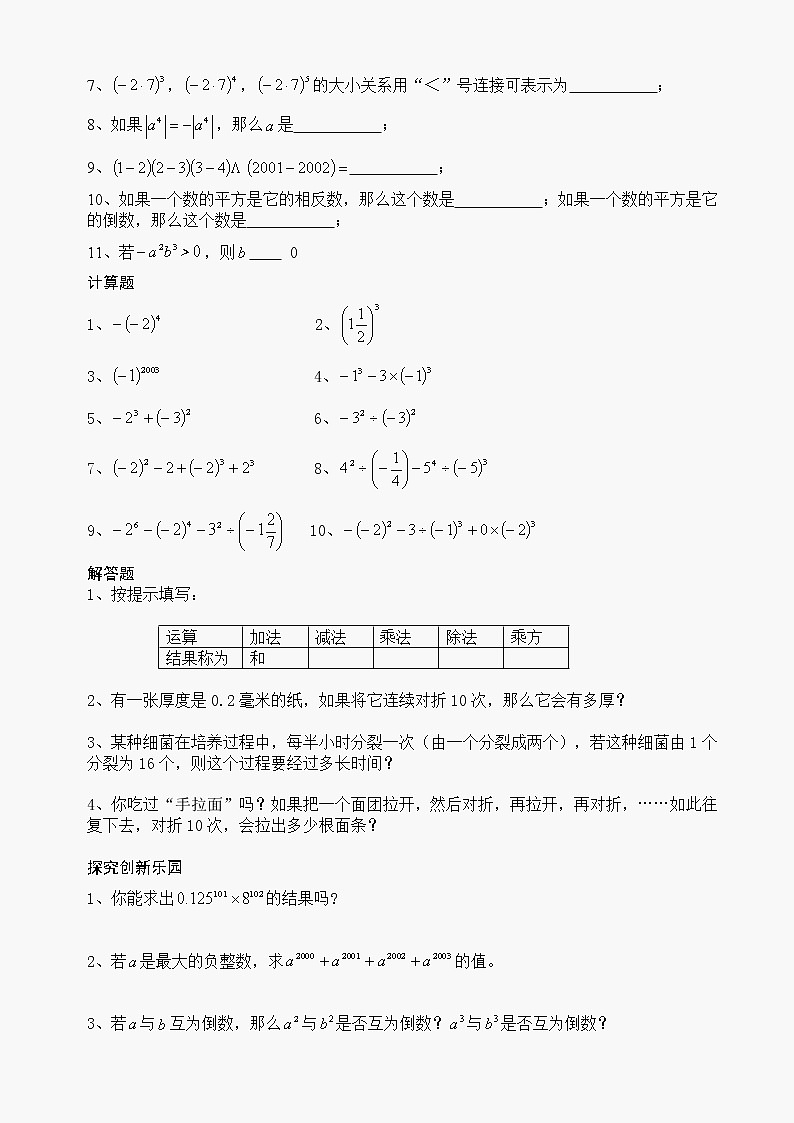 7、(−2·7)³，(−2·7)⁴，(−2·7)⁵的大小关系用“＜”号连接可表示为___________；
8、如果|a⁴|=−|a⁴|，那么a是___________；
9、(1−2)(2−3)(3−4)Λ (2001−2002)=___________；
10、如果一个数的平方是它的相反数，那么这个数是___________；如果一个数的平方是它
的倒数，那么这个数是___________；
11、若−a²b³>0，则b____ 0
计算题
1、−(−2)⁴ 2、(1 1/2)³
3、(−1)²⁰⁰³ 4、−1³−3×(−1)³
5、−2³+(−3)² 6、−3²÷(−3)²
7、(−2)²−2+(−2)³+2³ 8、4²÷(−1/4)−5⁴÷(−5)³
9、−2⁶−(−2)⁴−3²÷(−1 2/7) 10、−(−2)²−3÷(−1)³+0×(−2)³
解答题
1、按提示填写：
运算 加法 减法 乘法 除法 乘方
结果称为 和
2、有一张厚度是0.2毫米的纸，如果将它连续对折10次，那么它会有多厚？
3、某种细菌在培养过程中，每半小时分裂一次（由一个分裂成两个），若这种细菌由1个
分裂为16个，则这个过程要经过多长时间？
4、你吃过“手拉面”吗？如果把一个面团拉开，然后对折，再拉开，再对折，……如此往
复下去，对折10次，会拉出多少根面条？
探究创新乐园
1、你能求出0.125¹⁰¹×8¹⁰²的结果吗？
2、若a是最大的负整数，求a²⁰⁰⁰+a²⁰⁰¹+a²⁰⁰²+a²⁰⁰³的值。
3、若a与b互为倒数，那么a²与b²是否互为倒数？a³与b³是否互为倒数？